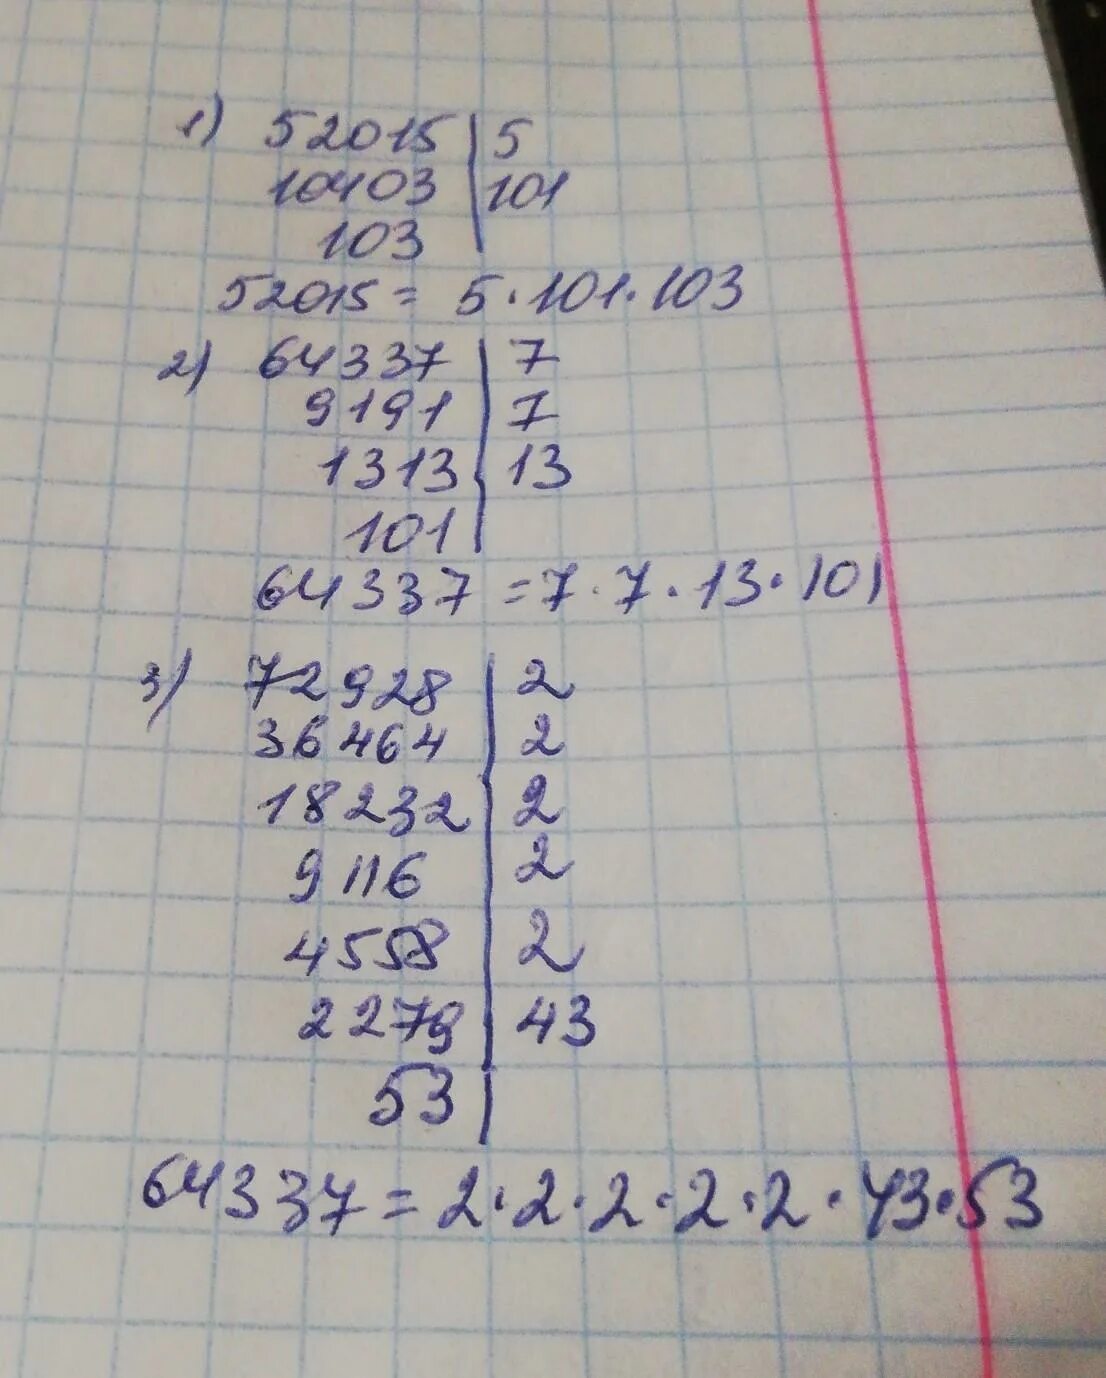 1) 52015 | 5
10403 | 101
103 |
52015 = 5 · 101 · 103
2) 64337 | 7
9191 | 7
1313 | 13
101 |
64337 = 7 · 7 · 13 · 101
3) 72928 | 2
36464 | 2
18232 | 2
9116 | 2
4558 | 2
2279 | 43
53 |
64337 = 2 · 2 · 2 · 2 · 2 · 43 · 53